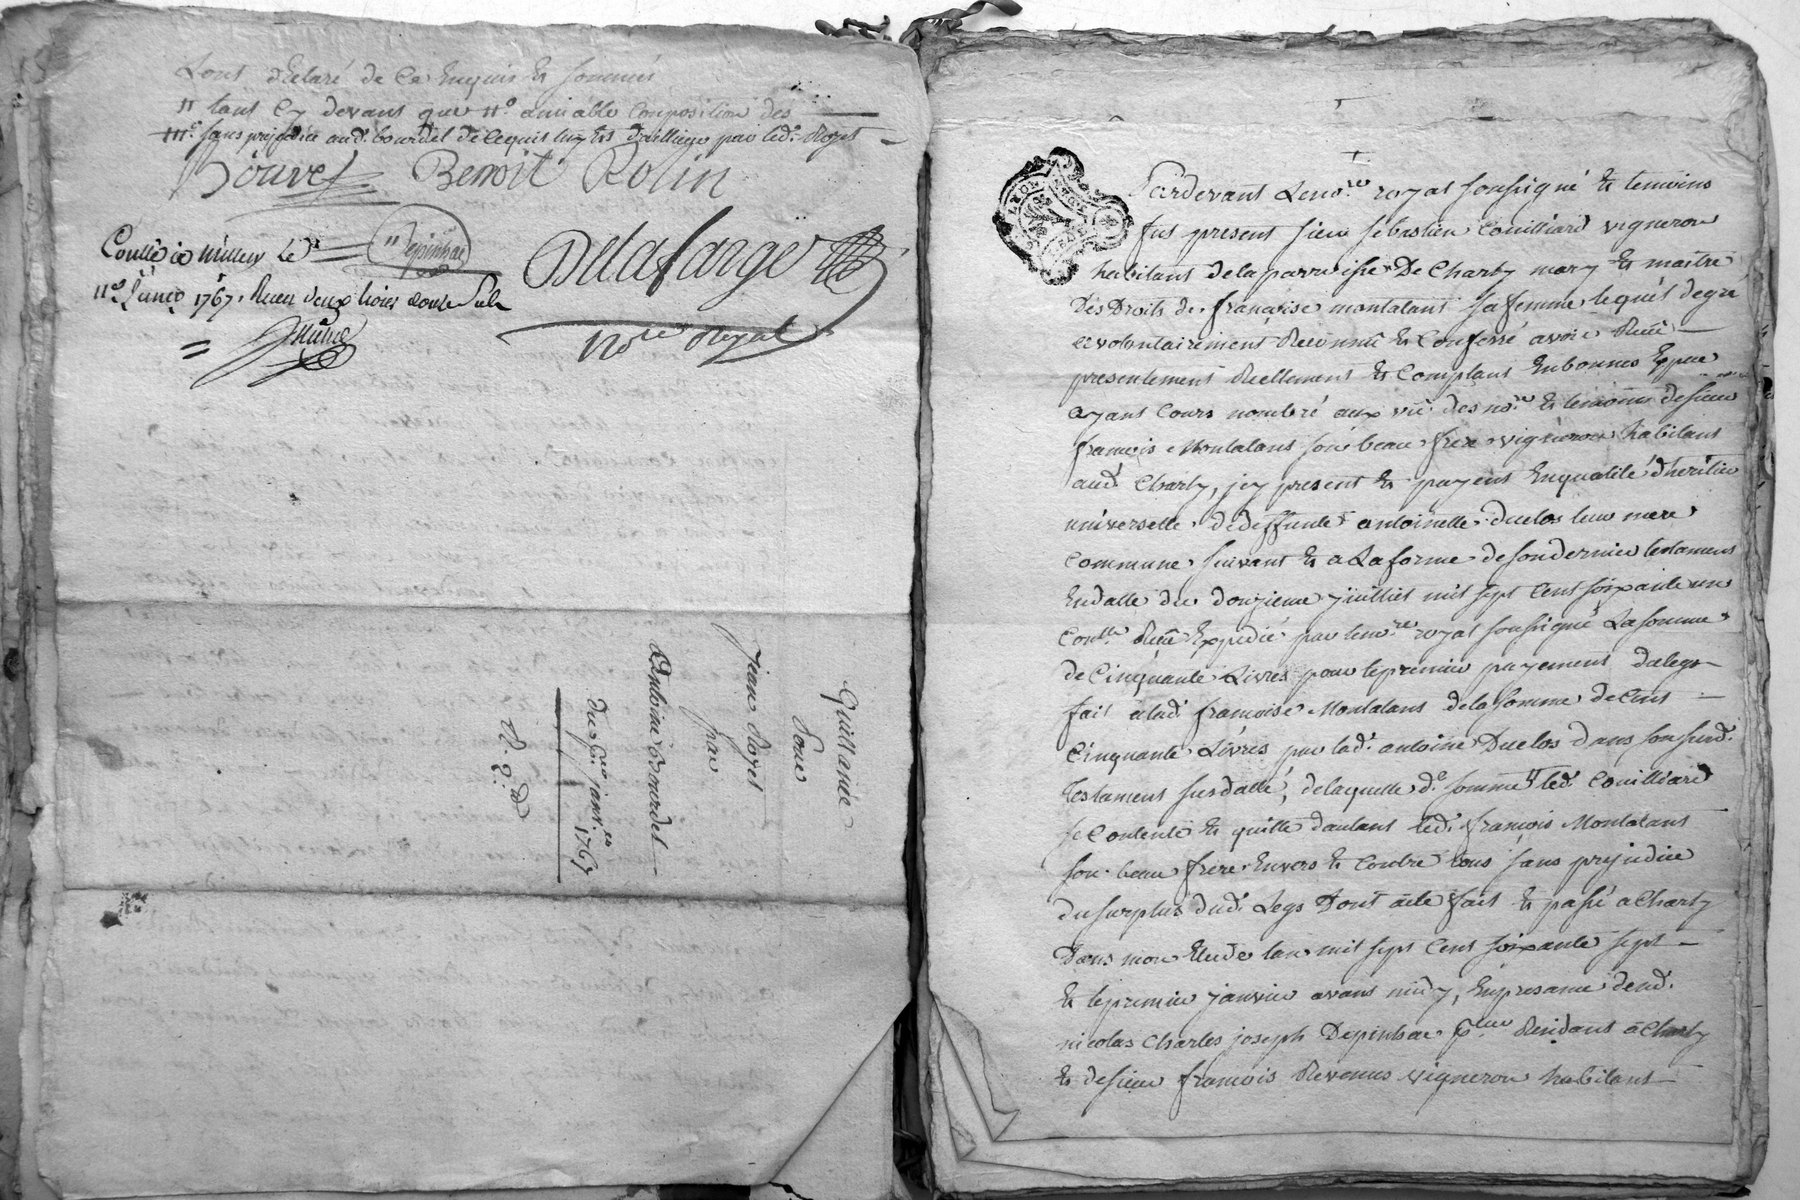 L'ont déclaré de ce enquis et sommés
" tant cy devant que n.o amiable composition des
sans prejudice aud. bourdel de lequis luy et d'ailleur par led. Royet
Bouvet Benoit Rolin
Depinhac
Delafarge
Nore Royal
Conllé a millery le
11e. Janer 1767. Reçu deux livres douze sols
Quittance
Pour
Jean Royet
par
Antoine Bourdel
du pr. janv.er 1767
R. 2. d
LION
Pardevant Leno.re royal soussigné et temoins
fut present sieur sebastien Couilliard vigneron
habitant de la parroisse De Charly mary et maitre
Des Droits de françoise montalant sa femme lequel de gré
et volontairement Reconnu et Confessé avoir Receu
presentement Reellement et Comptant En bonnes Especes
ayant Cours nombré aux vüe des no.re et temoins de sieur
françois Montalant son beau frere vigneron habitant
aud. Charly, jcy present et payent En qualité dheritier
universelle de deffunte antoinette duclos leur mere
Commune suivant et a La forme de son dernier testament
En datte du douzieme juilliet mil sept Cent soixante un
Conllé Receu Expedié par le no.re royal soussigné La somme
de Cinquante Livres pour le premier payement du legs
fait a lad. francoise Montalant de la somme de Cent
Cinquante Livres par lad. antoine Duclos dans son susd.
Testament susdatté, de laquelle d.e somme led. Couilliard
se Contente et quitte dautant led. françois Montalant
son beau frere Envers et Contre tous sans prejudice
du surplus dud. Legs Dont acte fait et passé a Charly
Dans mon Etude lan mil sept Cent soixante sept
et le premier janvier avant midy, En presance de md.
nicolas Charles joseph Depinhac Residant à Charly
et de sieur francois Revenus vigneron habitant